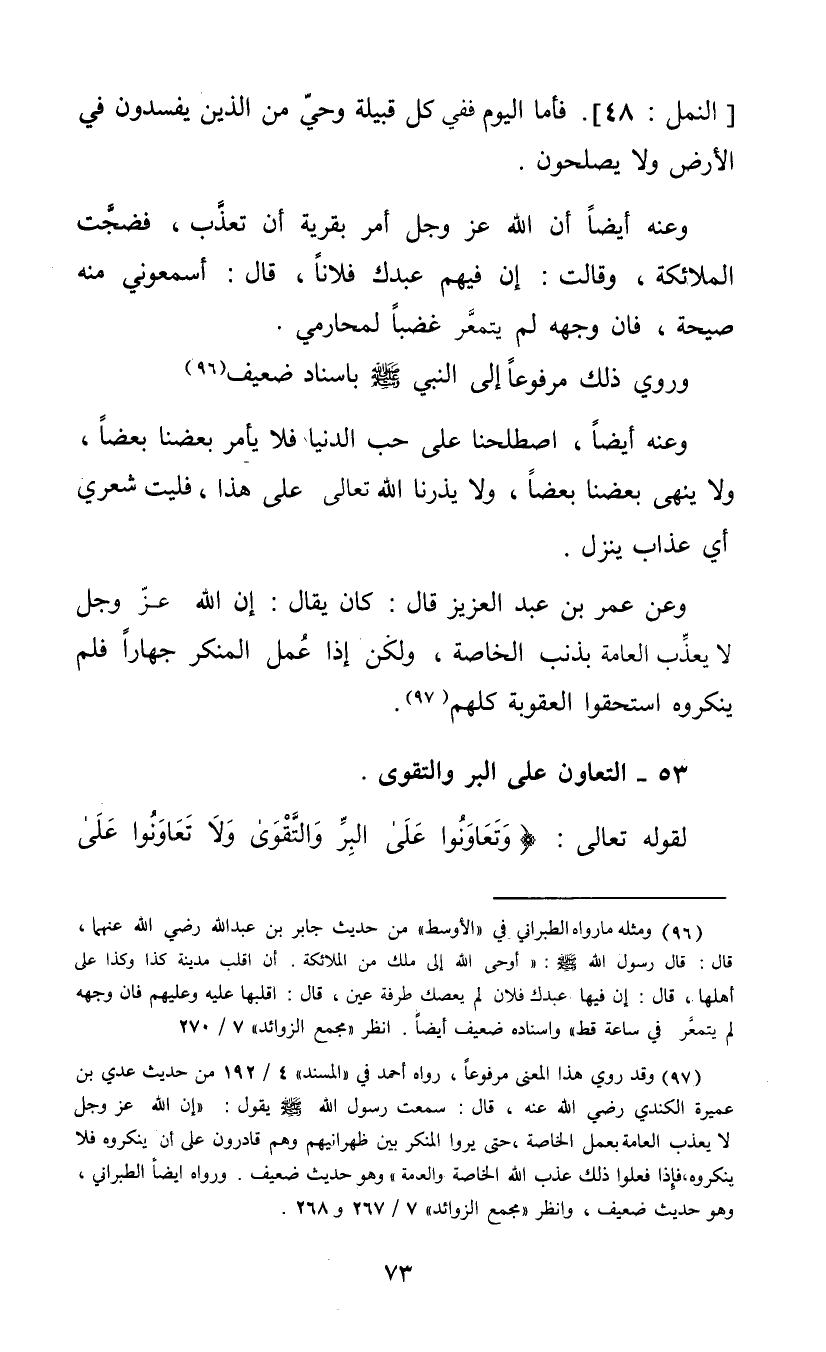 [ النمل : ٤٨]. فأما اليوم ففي كل قبيلة وحيّ من الذين يفسدون في
الأرض ولا يصلحون .
وعنه أيضاً أن الله عز وجل أمر بقرية أن تعذَّب ، فضجَّت
الملائكة ، وقالت : إن فيهم عبدك فلاناً ، قال : أسمعوني منه
صيحة ، فان وجهه لم يتمعَّر غضباً لمحارمي .
وروي ذلك مرفوعاً إلى النبي ﷺ باسناد ضعيف(٩٦)
وعنه أيضاً ، اصطلحنا على حب الدنيا فلا يأمر بعضنا بعضاً ،
ولا ينهى بعضنا بعضاً ، ولا يذرنا الله تعالى على هذا ، فليت شعري
أي عذاب ينزل .
وعن عمر بن عبد العزيز قال : كان يقال : إن الله عـزّ وجل
لا يعذِّب العامة بذنب الخاصة ، ولكن إذا عُمل المنكر جهاراً فلم
ينكروه استحقوا العقوبة كلهم(٩٧).
٥٣ ـ التعاون على البر والتقوى .
لقوله تعالى : ﴿ وَتَعَاوَنُوا عَلَىٰ البِرِّ وَالتَّقْوَىٰ وَلَا تَعَاوَنُوا عَلَىٰ
(٩٦) ومثله مارواه الطبراني في «الأوسط» من حديث جابر بن عبدالله رضي الله عنهما ،
قال : قال رسول الله ﷺ : « أوحى الله إلى ملك من الملائكة . أن اقلب مدينة كذا وكذا على
أهلها ، قال : إن فيها عبدك فلان لم يعصك طرفة عين ، قال : اقلبها عليه وعليهم فان وجهه
لم يتمعَّر في ساعة قط» واسناده ضعيف أيضاً . انظر «مجمع الزوائد» ٧ / ٢٧٠
(٩٧) وقد روي هذا المعنى مرفوعاً ، رواه أحمد في «المسند» ٤ / ١٩٢ من حديث عدي بن
عميرة الكندي رضي الله عنه ، قال : سمعت رسول الله ﷺ يقول : «إن الله عز وجل
لا يعذب العامة بعمل الخاصة ،حتى يروا المنكر بين ظهرانيهم وهم قادرون على أن ينكروه فلا
ينكروه،فإذا فعلوا ذلك عذب الله الخاصة والعمة » وهو حديث ضعيف . ورواه ايضاً الطبراني ،
وهو حديث ضعيف ، وانظر «مجمع الزوائد» ٧ / ٢٦٧ و ٢٦٨ .
٧٣